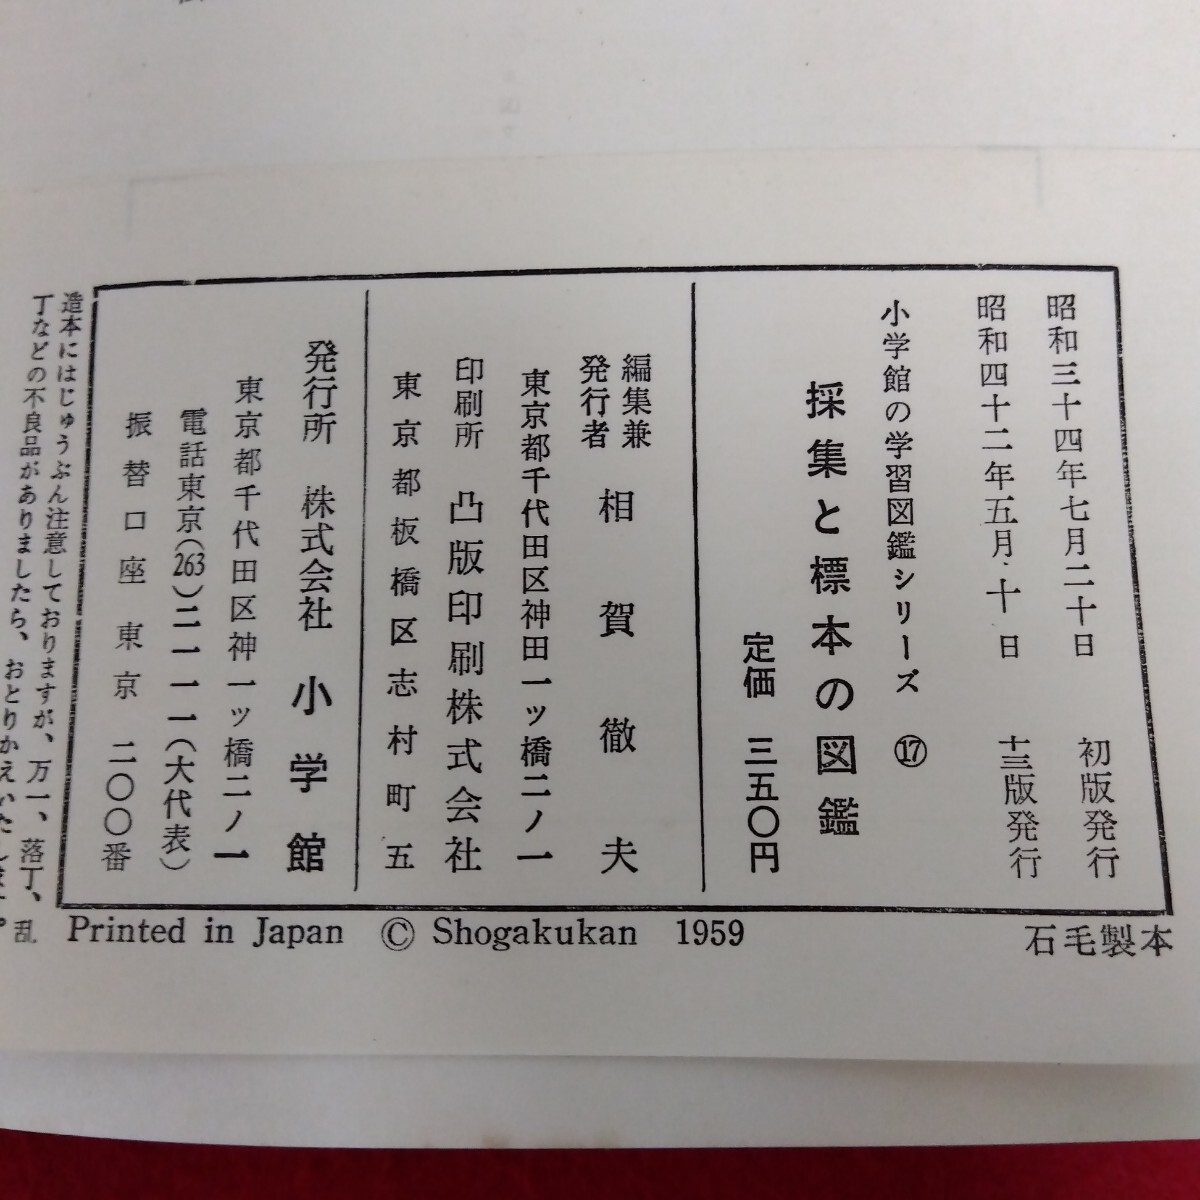 昭和三十四年七月二十日 初版発行
昭和四十二年五月十日 十三版発行
小学館の学習図鑑シリーズ ⑰
採集と標本の図鑑
定価 三五〇円
編集兼
発行者 相賀徹夫
東京都千代田区神田一ッ橋二ノ一
印刷所 凸版印刷株式会社
東京都板橋区志村町五
発行所 株式会社 小学館
東京都千代田区神一ッ橋二ノ一
電話東京(263)二一一一(大代表)
振替口座東京 二〇〇番
造本にはじゅうぶん注意しておりますが、万一、落丁、乱
丁などの不良品がありましたら、おとりかえいたします。
Printed in Japan © Shogakukan 1959
石毛製本